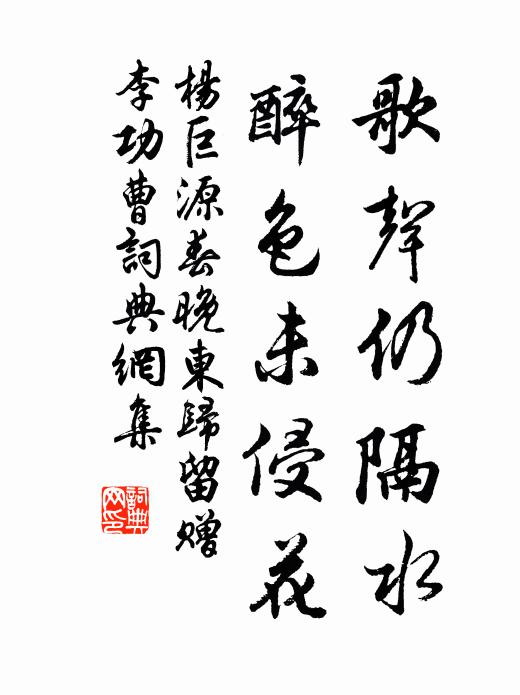 歌聲仍隔水
醉色未侵花
楊巨源春晚東歸留贈
李功曹詞典網集
詞典
网印